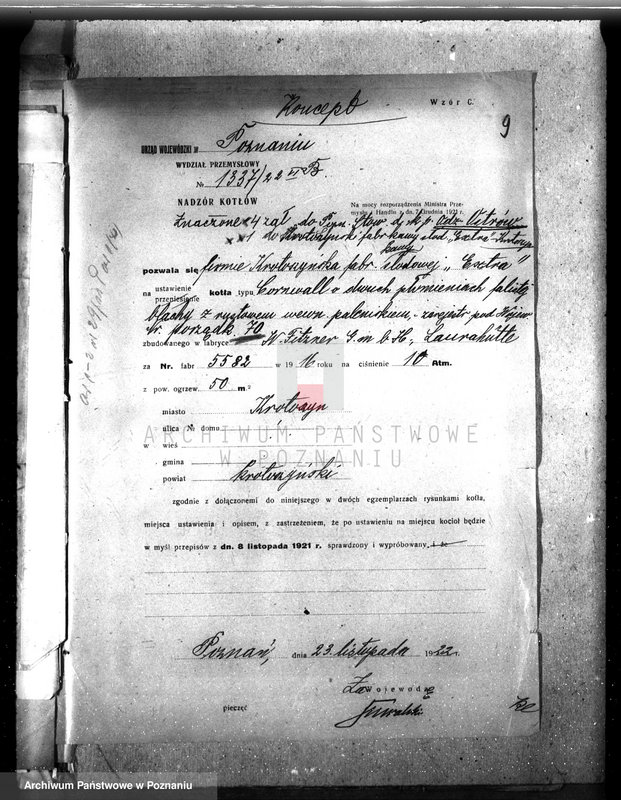 Koncept
Wzór C.
9
URZĄD WOJEWÓDZKI w Poznaniu
WYDZIAŁ PRZEMYSŁOWY
№ 1337/22 VI B.
NADZÓR KOTŁÓW
Na mocy rozporządzenia Ministra Prze-
mysłu i Handlu z dn. 7 Grudnia 1921 r.
Znaczone x 4 zał. do Stow. d. k. p. Odz. Ostrów
x x 1 do Krotoszyńsk. fabrykawy słod. "Extra" Krotoszyn
pozwala się firmie Krotoszyńska fabr. słodowej „Extra"
na ustawienie
przeniesienie
kotła typu Cornwall o dwuch płomieniach falistej
blachy z rusztowem wewn. palenikiem, zarejestr. pod Wojew.
nr. porządk. 70
zbudowanego w fabryce W. Fitzner G. m b H., Laurahütte
za Nr. fabr 5582 w 1916 roku na ciśnienie 10 Atm.
z pow. ogrzew. 50 m²
miasto Krotoszyn
ulica № domu
w wieś
gmina
powiat Krotoszyński
ARCHIWUM PAŃSTWOWE
W POZNANIU
zgodnie z dołączonemi do niniejszego w dwóch egzemplarzach rysunkami kotła,
miejsca ustawienia i opisem, z zastrzeżeniem, że po ustawieniu na miejscu kocioł będzie
w myśl przepisów z dn. 8 listopada 1921 r. sprawdzony i wypróbowany, i że
Poznań, dnia 23. listopada 1922 r.
Za Wojewodę
pieczęć
Archiwum Państwowe w Poznaniu